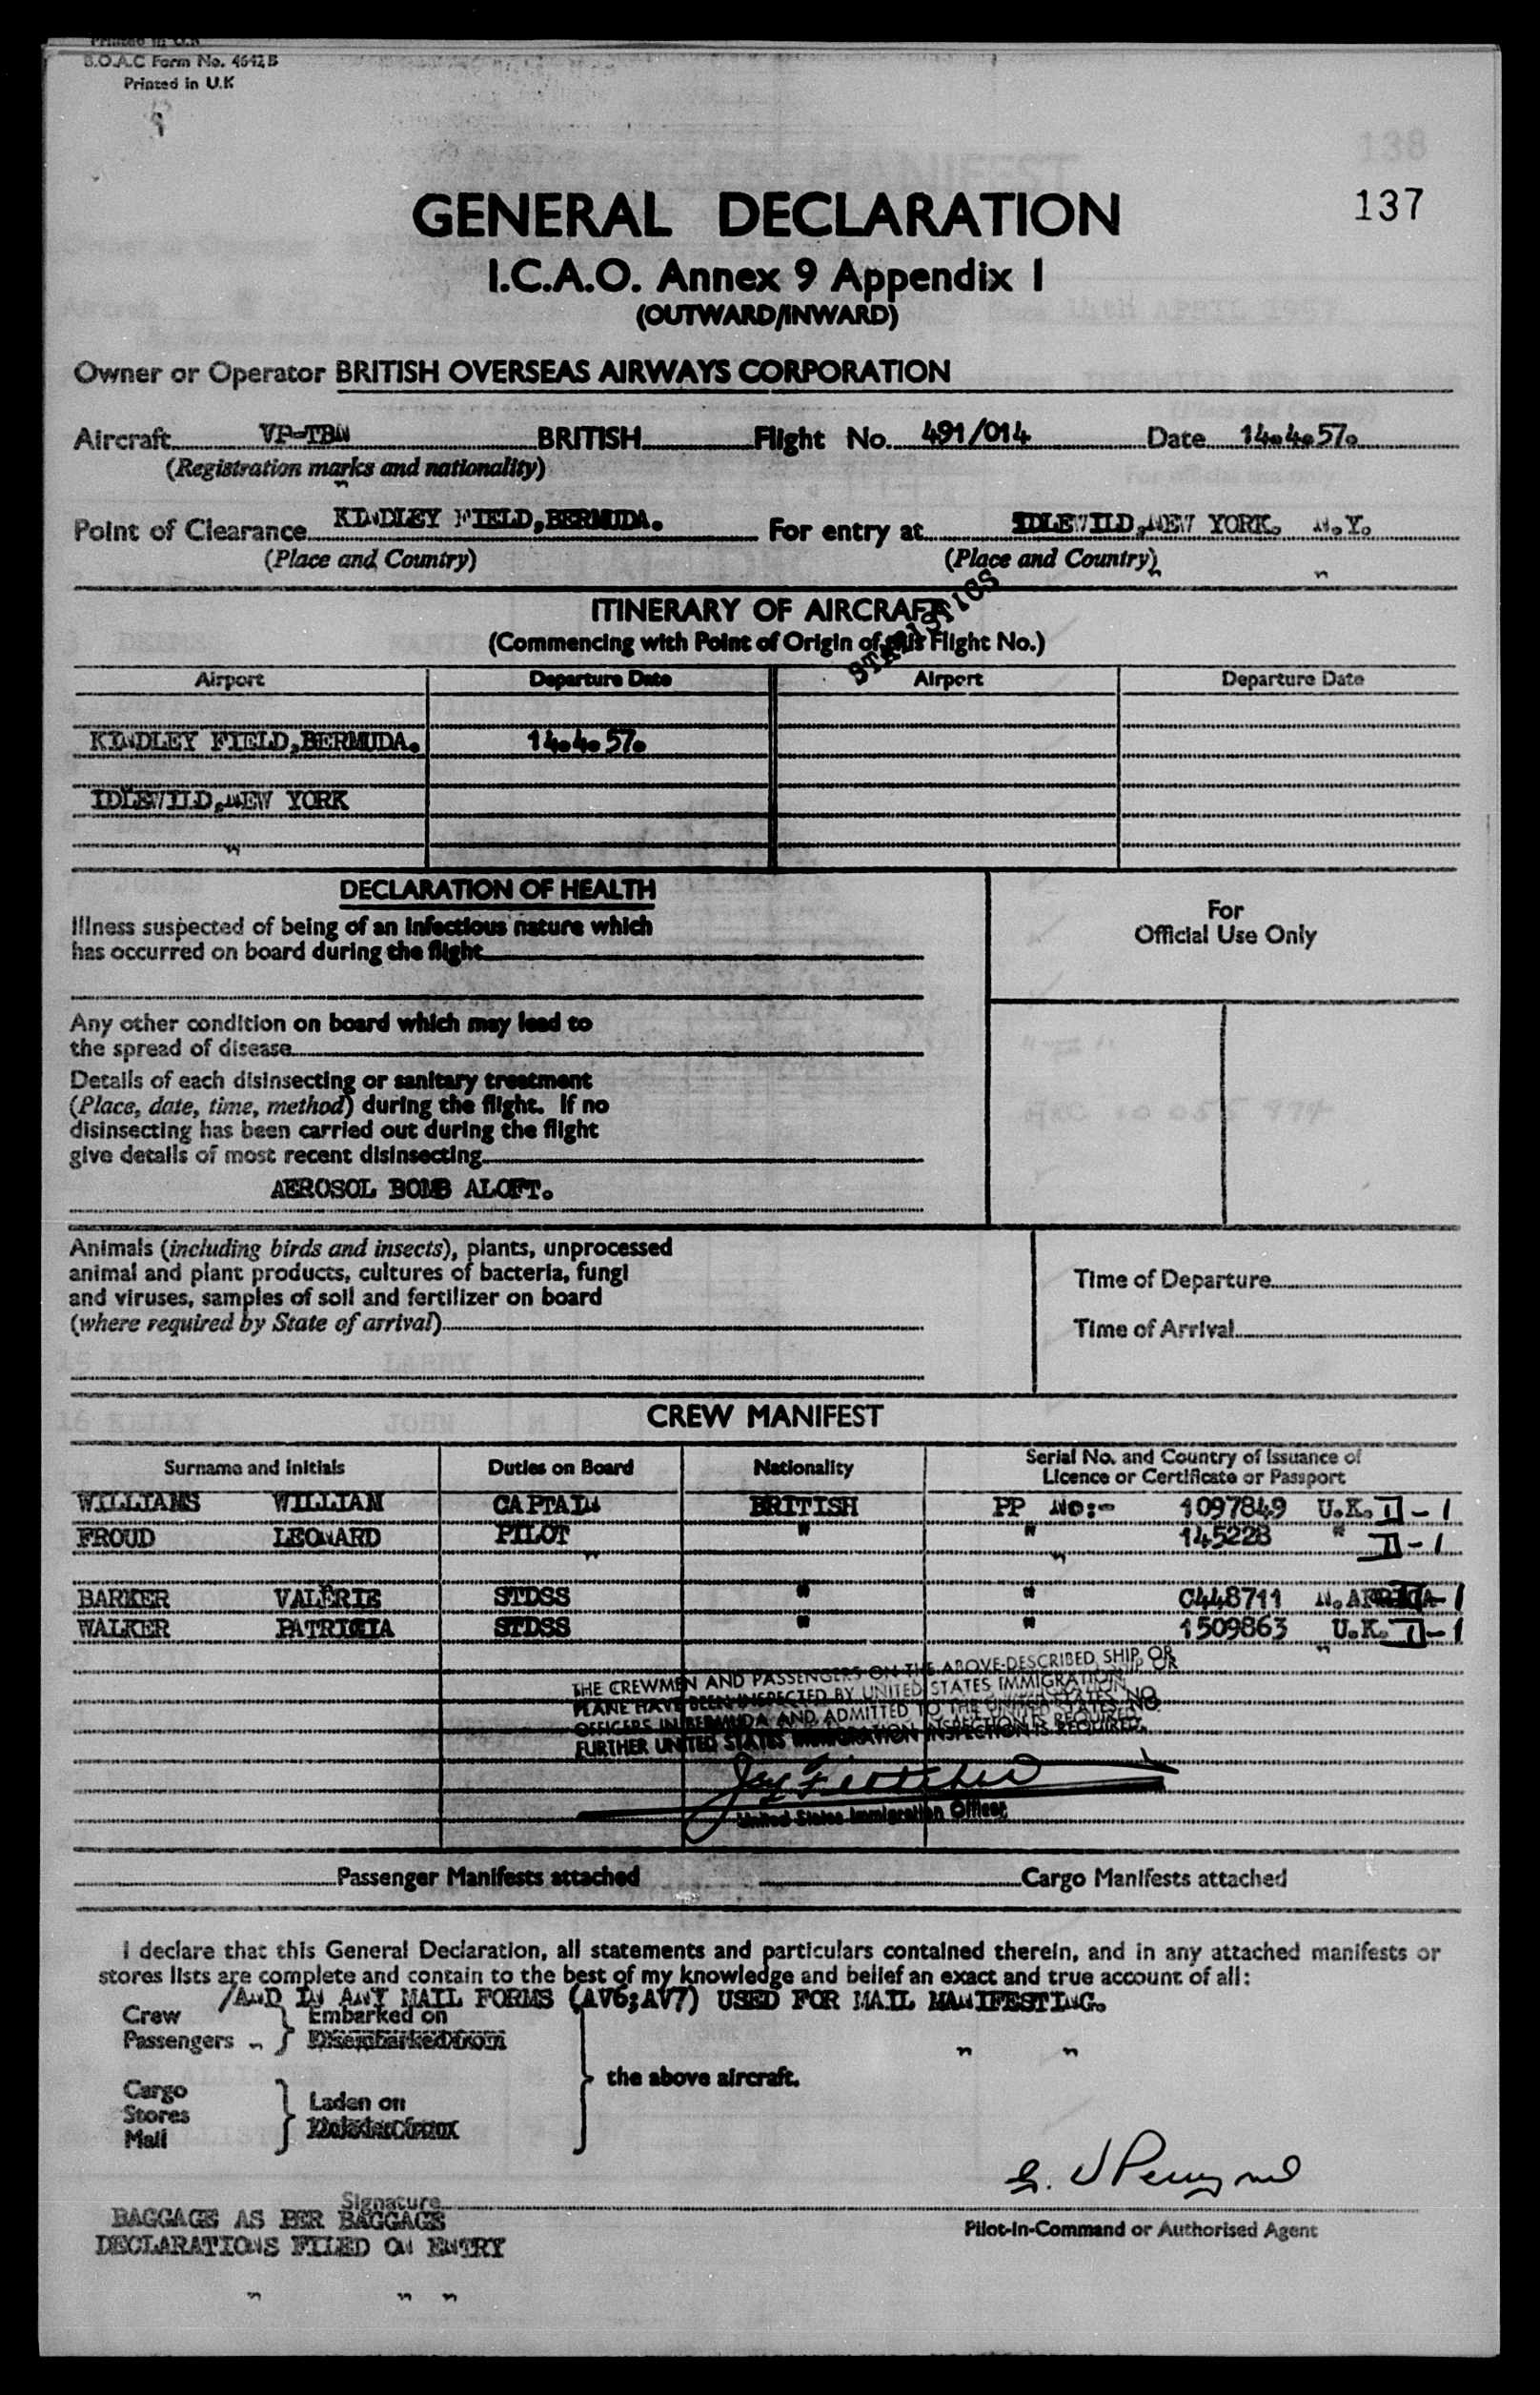 B.O.A.C Form No. 4642B
Printed in U.K
138
137
GENERAL DECLARATION
I.C.A.O. Annex 9 Appendix 1
(OUTWARD/INWARD)
Owner or Operator BRITISH OVERSEAS AIRWAYS CORPORATION
Aircraft VP-TBN BRITISH Flight No. 491/014 Date 14.4.57.
(Registration marks and nationality)
Point of Clearance KINDLEY FIELD,BERMUDA. For entry at IDLEWILD,NEW YORK. N.Y.
(Place and Country) (Place and Country)
STATISTICS
ITINERARY OF AIRCRAFT
(Commencing with Point of Origin of this Flight No.)
Airport Departure Date Airport Departure Date
KINDLEY FIELD,BERMUDA. 14.4.57.
IDLEWILD,NEW YORK
DECLARATION OF HEALTH
Illness suspected of being of an infectious nature which
has occurred on board during the flight
For
Official Use Only
Any other condition on board which may lead to
the spread of disease
Details of each disinsecting or sanitary treatment
(Place, date, time, method) during the flight. If no
disinsecting has been carried out during the flight
give details of most recent disinsecting
AEROSOL BOMB ALOFT.
Animals (including birds and insects), plants, unprocessed
animal and plant products, cultures of bacteria, fungi
and viruses, samples of soil and fertilizer on board
(where required by State of arrival)
Time of Departure
Time of Arrival
CREW MANIFEST
Surname and Initials Duties on Board Nationality Serial No. and Country of Issuance of
Licence or Certificate or Passport
WILLIAMS WILLIAN CAPTAIN BRITISH PP NO:- 1097849 U.K. II-1
FROUD LEONARD PILOT " " 145228 " II-1
BARKER VALERIE STDSS " " C448711 N.AFRICA-1
WALKER PATRICIA STDSS " " 1509863 U.K. II-1
THE CREWMEN AND PASSENGERS ON THE ABOVE-DESCRIBED SHIP OR
PLANE HAVE BEEN INSPECTED BY UNITED STATES IMMIGRATION
OFFICERS IN BERMUDA AND ADMITTED TO THE UNITED STATES. NO
FURTHER UNITED STATES IMMIGRATION INSPECTION IS REQUIRED.
United States Immigration Officer
Passenger Manifests attached Cargo Manifests attached
I declare that this General Declaration, all statements and particulars contained therein, and in any attached manifests or
stores lists are complete and contain to the best of my knowledge and belief an exact and true account of all:
/AND IN ANY MAIL FORMS (AV6;AV7) USED FOR MAIL MANIFESTING.
Crew
Passengers
Embarked on
Disembarked from
the above aircraft.
Cargo
Stores
Mail
Laden on
Unladen from
Signature
Pilot-in-Command or Authorised Agent
BAGGAGE AS PER BAGGAGE
DECLARATIONS FILED ON ENTRY